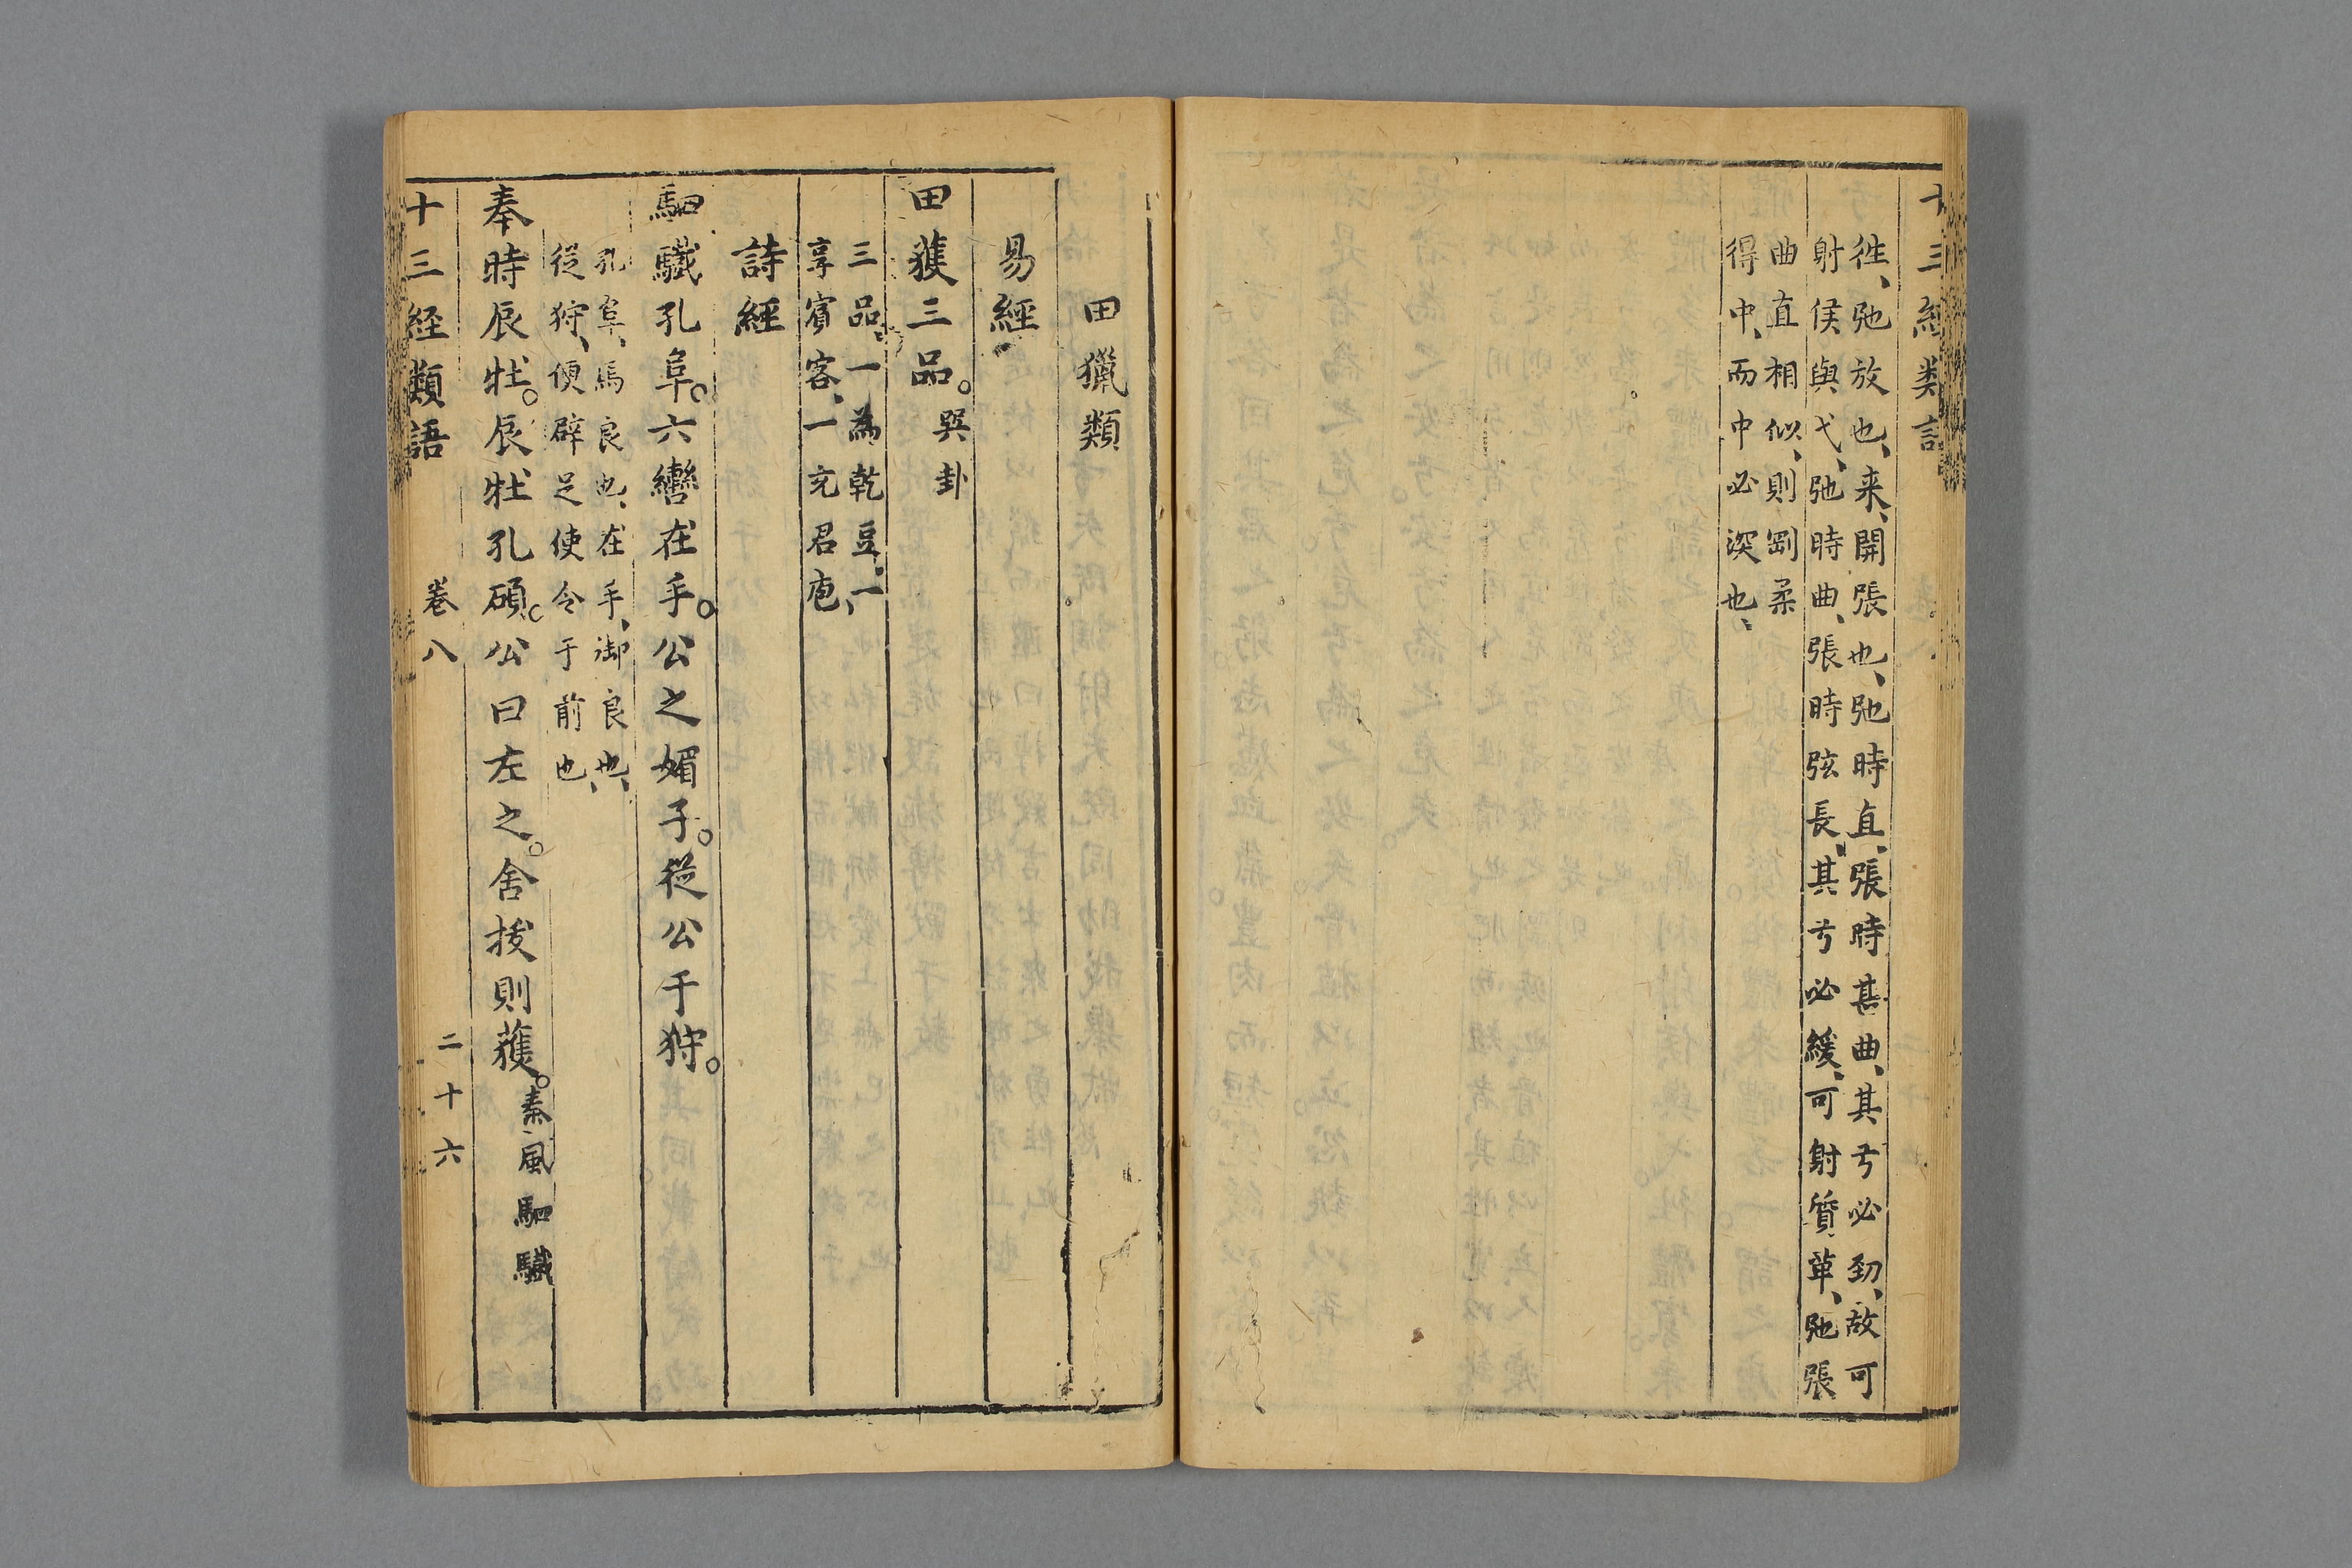 十三經类語
徃、弛放也、来、開張也、弛時直、張時甚曲、其弓必勁、故可
射侯與弋、弛時曲、張時弦長、其弓必緩、可射質革、弛張
曲直相似、則剛柔
得中、而中必深也、
田獵類
易經
田獲三品。巽卦
三品、一為乾豆、一
享賓客、一充君庖、
詩經
駟驖孔阜。六轡在手。公之媚子。從公于狩。
孔阜、馬良也、在手、御良也、
從狩、便辟足使令于前也、
奉時辰牡。辰牡孔碩。公曰左之。舍拔則獲。秦風駟驖
十三經類語 卷八 二十六